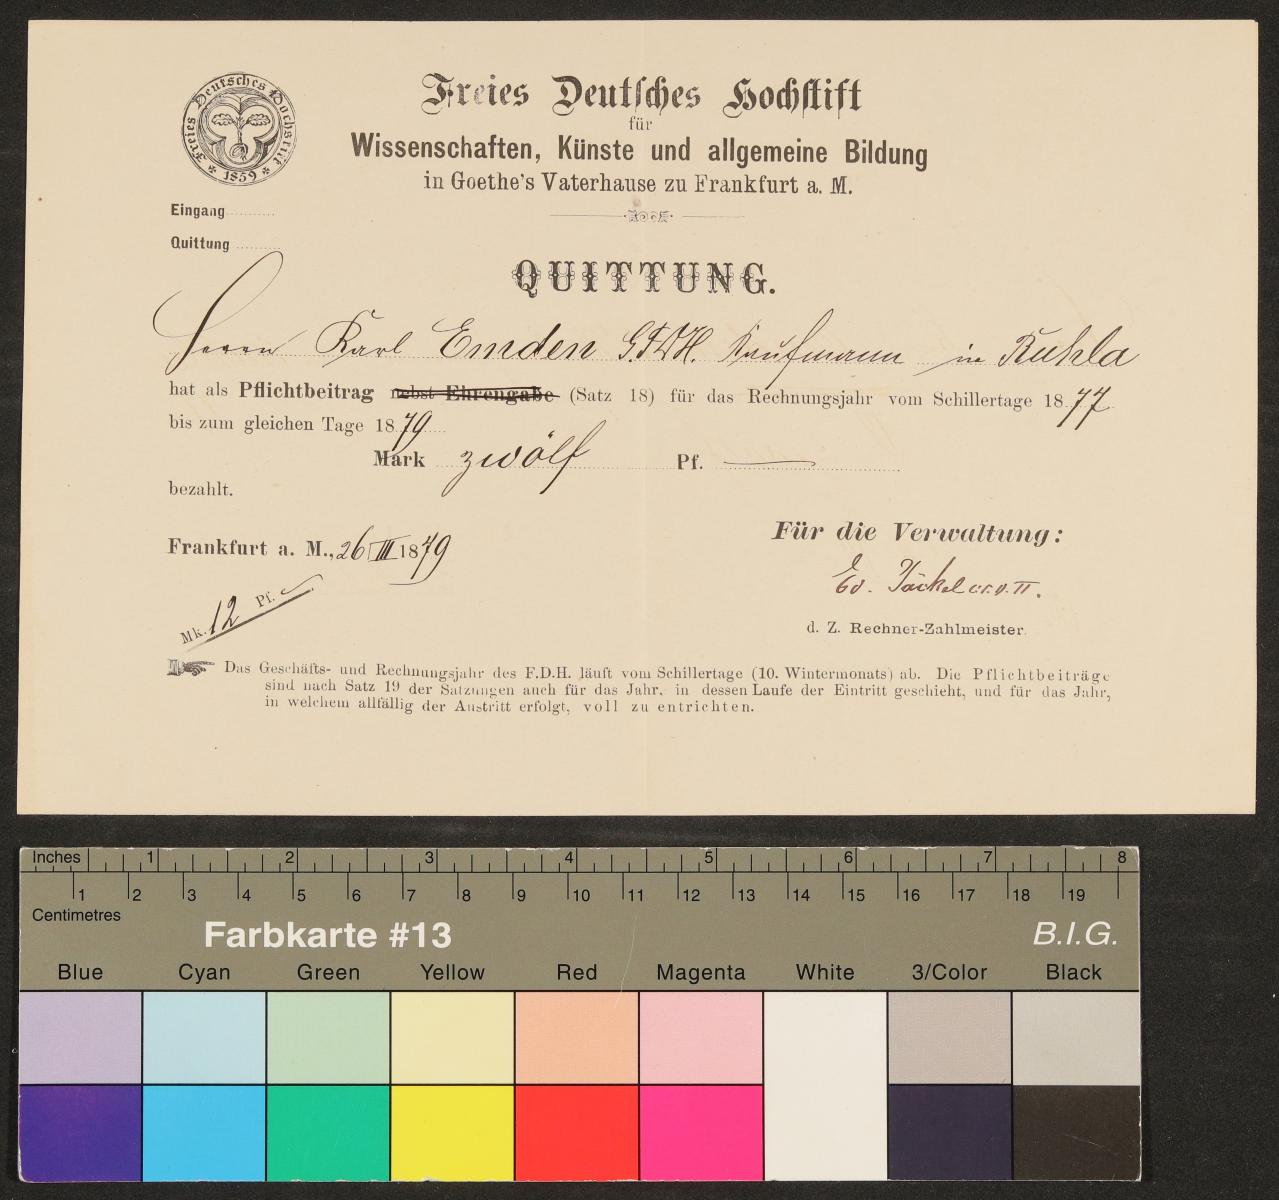 Freies Deutsches Hochstift
1859
Freies Deutsches Hochstift
für
Wissenschaften, Künste und allgemeine Bildung
in Goethe's Vaterhause zu Frankfurt a. M.
Eingang
Quittung
QUITTUNG.
Herrn Karl Emden G.F.D.H. Kaufmann in Ruhla
hat als Pflichtbeitrag nebst Ehrengabe (Satz 18) für das Rechnungsjahr vom Schillertage 1877
bis zum gleichen Tage 1879
Mark zwölf Pf. —
bezahlt.
Frankfurt a. M., 26 III 1879
Für die Verwaltung:
Ed. Jäckel
d. Z. Rechner-Zahlmeister
Mk. 12 Pf.
Das Geschäfts- und Rechnungsjahr des F.D.H. läuft vom Schillertage (10. Wintermonats) ab. Die Pflichtbeiträge
sind nach Satz 19 der Satzungen auch für das Jahr, in dessen Laufe der Eintritt geschieht, und für das Jahr,
in welchem allfällig der Austritt erfolgt, voll zu entrichten.
Inches 1 2 3 4 5 6 7 8
1 2 3 4 5 6 7 8 9 10 11 12 13 14 15 16 17 18 19
Centimetres
Farbkarte #13 B.I.G.
Blue Cyan Green Yellow Red Magenta White 3/Color Black